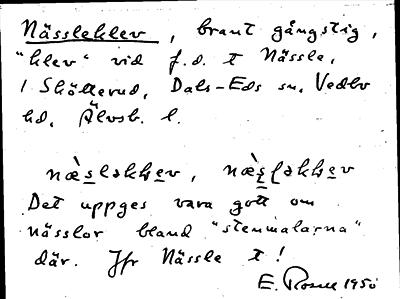 Nässleklev, brant gångstig,
"klev" vid f.d. t Nässle,
i Skötterud, Dals-Eds sn, Vedbo
hd, Älvsb. l.
næ̀sləkkev, næ̀sləkkev
Det uppges vara gott om
nässlor bland "stenmalarna"
där. Jfr Nässle t!
E. 1950